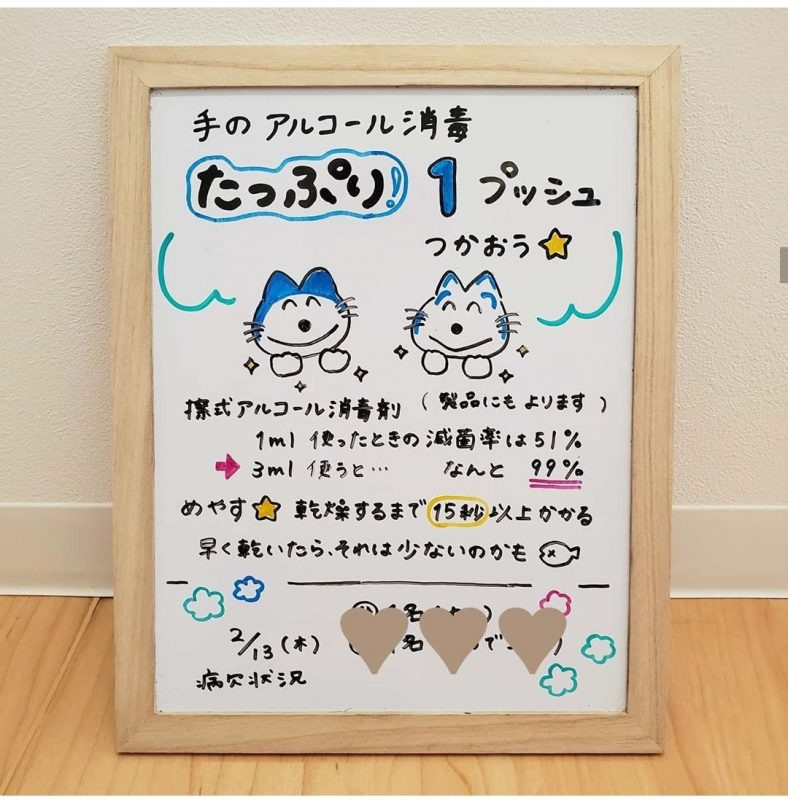 手の アルコール消毒
たっぷり! 1 プッシュ
つかおう
擦式アルコール消毒剤 (製品にもよります)
1ml 使ったときの 減菌率は51%
3ml 使うと… なんと 99%
めやす 乾燥するまで 15秒以上かかる
早く乾いたら、それは少ないのかも
2/13(木)
病欠状況